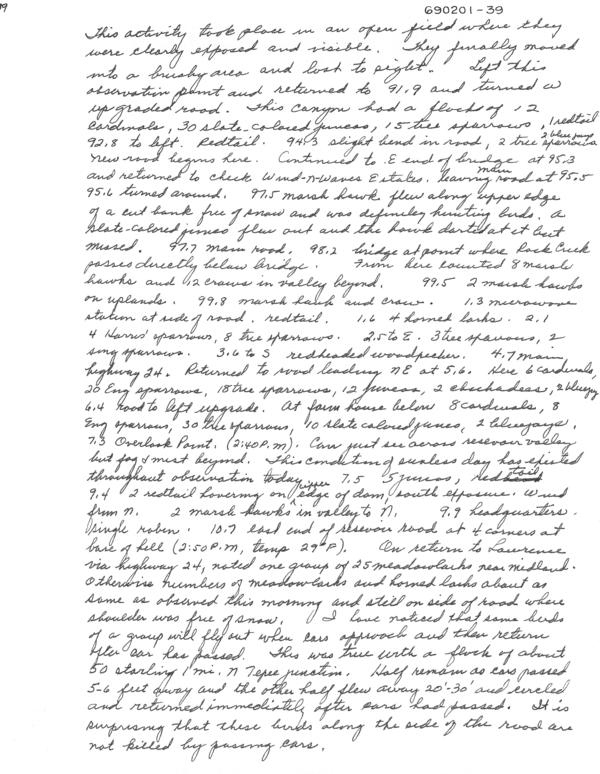 99
690201-39
This activity took place in an open field where they
were clearly exposed and visible. They finally moved
into a brushy area and lost to sight. Left this
observation point and returned to 91.9 and turned on
up graded road. This canyon had a flock of 12
cardinals, 30 slate-colored juncos, 15 tree sparrows, 1 redtail
92.8 to left. Redtail. 94.3 slight bend in road, 2 tree sparrows 2 bluejays
new road begins here. Continued to E end of bridge at 95.3
and returned to check Wind-N-Waves Estates. leaving main road at 95.5
95.6 turned around. 97.5 marsh hawk flew along upper edge
of a cut bank free of snow and was definitely hunting birds. A
slate-colored junco flew out and the hawk darted at it but
missed. 97.7 main road. 98.2 bridge at point where Rock Creek
passes directly below bridge. From here counted 8 marsh
hawks and 12 crows in valley beyond. 99.5 2 marsh hawks
on uplands. 99.8 marsh hawk and crow. 1.3 microwave
station at side of road. redtail. 1.6 4 horned larks. 2.1
4 Harris' sparrows, 8 tree sparrows. 2.5 to E. 3 tree sparrows, 2
song sparrows. 3.6 to S redheaded woodpecker. 4.7 main
highway 24. Returned to road leading NE at 5.6. Here 6 cardinals,
20 Eng sparrows, 18 tree sparrows, 12 juncos, 2 chickadees, 2 bluejay
6.4 road to left upgrade. At farm house below 8 cardinals, 8
Eng sparrows, 30 tree sparrows, 10 slate colored juncos, 2 bluejays.
7.3 Overlook Point. (2:40 P.M). Can just see across resevoir valley
but fog & mist beyond. This condition of sunless day has existed
throughout observation today. 7.5 5 juncos, redtail
9.4 2 redtail hovering on upper edge of dam, south exposure. Wind
from N. 2 marsh hawks in valley to N. 9.9 headquarters.
Single robin. 10.7 east end of resevoir road at 4 corners at
base of hill (2:50 P.M, temp 29°P). On return to Lawrence
via highway 24, noted one group of 25 meadowlarks near Midland.
Otherwise numbers of meadowlarks and horned larks about as
same as observed this morning and still on side of road where
shoulder was free of snow. I have noticed that some birds
of a group will fly out when cars approach and then return
after car has passed. This was true with a flock of about
50 starling 1 mi. N Tepee junction. Half remain as cars passed
5-6 feet away and the other half flew away 20'-30' and circled
and returned immediately after cars had passed. It is
surprising that these birds along the side of the road are
not killed by passing cars.